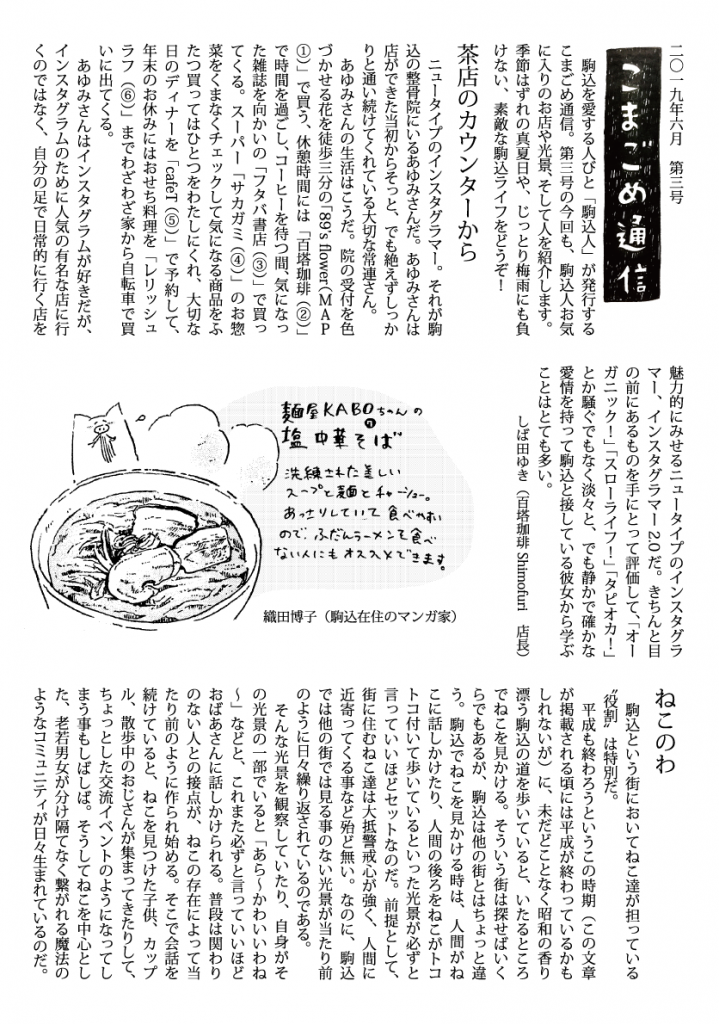 二〇一九年六月　第三号
こまごめ通信
駒込を愛する人びと「駒込人」が発行する
こまごめ通信。第三号の今回も、駒込人お気
に入りのお店や光景、そして人を紹介します。
季節はずれの真夏日や、じっとり梅雨にも負
けない、素敵な駒込ライフをどうぞ！
茶店のカウンターから
ニュータイプのインスタグラマー。それが駒
込の整骨院にいるあゆみさんだ。あゆみさんは
店ができた当初からそっと、でも絶えずしっか
りと通い続けてくれている大切な常連さん。
あゆみさんの生活はこうだ。院の受付を色
づかせる花を徒歩三分の「89's flower（MAP
①）」で買う、休憩時間には「百塔珈琲（②）」
で時間を過ごし、コーヒーを待つ間、気になっ
た雑誌を向かいの「フタバ書店（③）」で買っ
てくる。スーパー「サカガミ（④）」のお惣
菜をくまなくチェックして気になる商品をふ
たつ買ってはひとつをわたしにくれ、大切な
日のディナーを「cafeT（⑤）」で予約して、
年末のお休みにはおせち料理を「レリッシュ
ラフ（⑥）」までわざわざ家から自転車で買
いに出てくる。
あゆみさんはインスタグラムが好きだが、
インスタグラムのために人気の有名な店に行
くのではなく、自分の足で日常的に行く店を
魅力的にみせるニュータイプのインスタグラ
マー、インスタグラマー2.0だ。きちんと目
の前にあるものを手にとって評価して、「オー
ガニック！」「スローライフ！」「タピオカ！」
とか騒ぐでもなく淡々と、でも静かで確かな
愛情を持って駒込と接している彼女から学ぶ
ことはとても多い。
しば田ゆき（百塔珈琲 Shimofuri　店長）
麺屋KABOちゃんの
塩中華そば
洗練された美しい
スープと麺とチャーシュー。
あっさりしていて食べやすい
ので、ふだんラーメンを食べ
ない人にもオススメできます。
織田博子（駒込在住のマンガ家）
ねこのわ
駒込という街においてねこ達が担っている
〝役割〟は特別だ。
平成も終わろうというこの時期（この文章
が掲載される頃には平成が終わっているかも
しれないが）に、未だどことなく昭和の香り
漂う駒込の道を歩いていると、いたるところ
でねこを見かける。そういう街は探せばいく
らでもあるが、駒込は他の街とはちょっと違
う。駒込でねこを見かける時は、人間がね
こに話しかけたり、人間の後ろをねこがトコ
トコ付いて歩いているといった光景が必ずと
言っていいほどセットなのだ。前提として、
街に住むねこ達は大抵警戒心が強く、人間に
近寄ってくる事など殆ど無い。なのに、駒込
では他の街では見る事のない光景が当たり前
のように日々繰り返されているのである。
そんな光景を観察していたり、自身がそ
の光景の一部でいると「あら～かわいいわね
～」などと、これまた必ずと言っていいほど
おばあさんに話しかけられる。普段は関わり
のない人との接点が、ねこの存在によって当
たり前のように作られ始める。そこで会話を
続けていると、ねこを見つけた子供、カップ
ル、散歩中のおじさんが集まってきたりして、
ちょっとした交流イベントのようになってし
まう事もしばしば。そうしてねこを中心とし
た、老若男女が分け隔てなく繋がれる魔法の
ようなコミュニティが日々生まれているのだ。